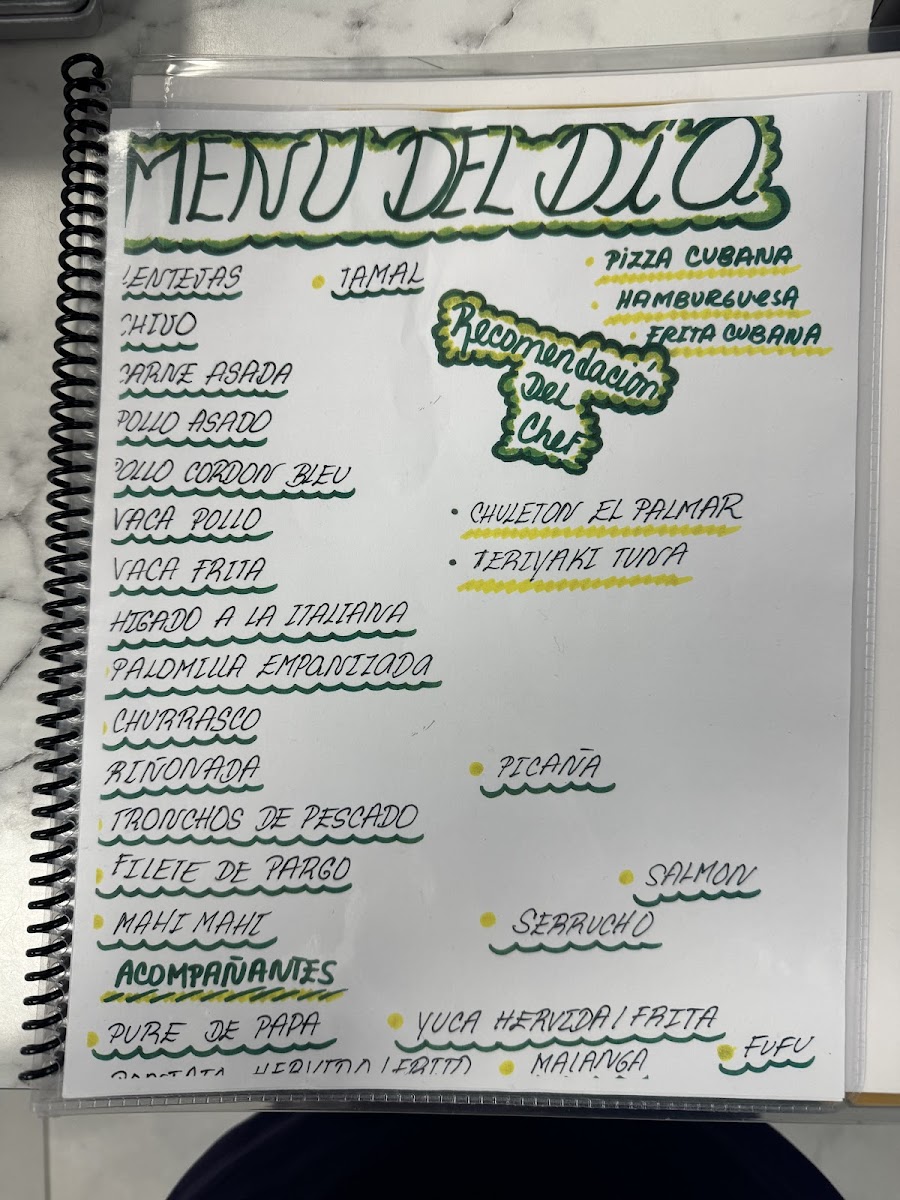 MENU DEL DÍA
LENTEJAS
TAMAL
PIZZA CUBANA
HAMBURGUESA
FRITA CUBANA
CHIVO
CARNE ASADA
POLLO ASADO
POLLO CORDON BLEU
VACA POLLO
VACA FRITA
HIGADO A LA ITALIANA
PALOMILLA EMPANIZADA
CHURRASCO
RIÑONADA
TRONCHOS DE PESCADO
FILETE DE PARGO
MAHI MAHI
Recomendación
Del
Chef
CHULETON EL PALMAR
TERIYAKI TUNA
PICAÑA
SALMON
SERRUCHO
ACOMPAÑANTES
PURE DE PAPA
YUCA HERVIDA/FRITA
FUFU
HERVIDO/FRITO
MALANGA